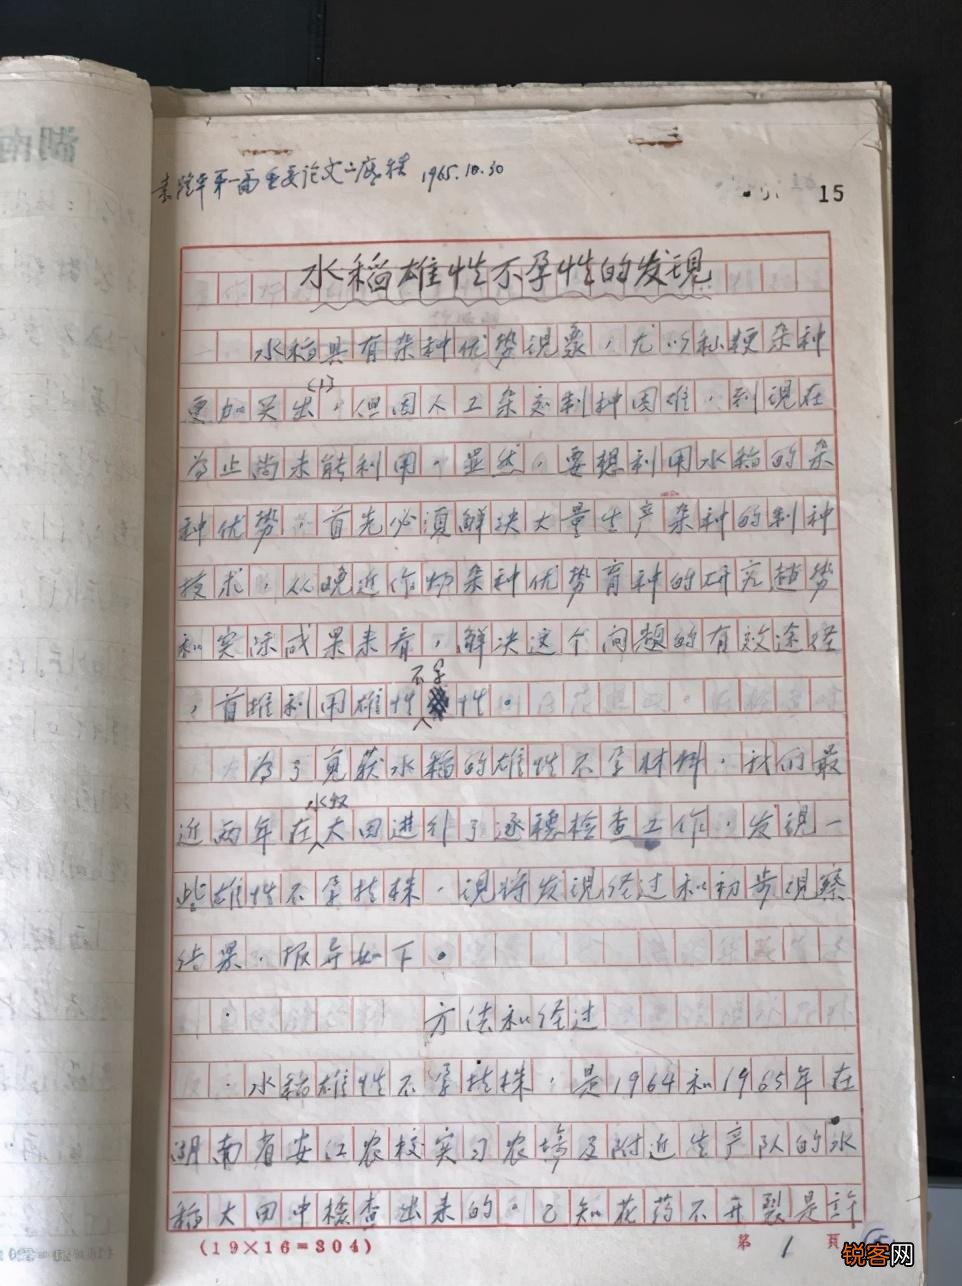 袁隆平第一篇重要论文之底稿 1965.10.30
15
水稻雄性不孕性的发现
水稻具有杂种优势现象，尤以籼粳杂种
更加突出(1)，但因人工杂交制种困难，到现在
为止尚未能利用。显然，要想利用水稻的杂
种优势，首先必须解决大量生产杂种的制种
技术，从晚近作物杂种优势育种的研究趋势
和实际成果来看，解决这个问题的有效途径
，首推利用雄性不孕性。
为了觅获水稻的雄性不孕材料，我们最
近两年在水稻大田进行了逐穗检查工作，发现一
些雄性不孕植株，现将发现经过和初步观察
结果，报导如下。
方法和经过
水稻雄性不孕植株，是1964和1965年在
湖南省安江农校实习农场及附近生产队的水
稻大田中检查出来的。已知花药不开裂是許
(19×16=304)
第 1 頁
锐客网